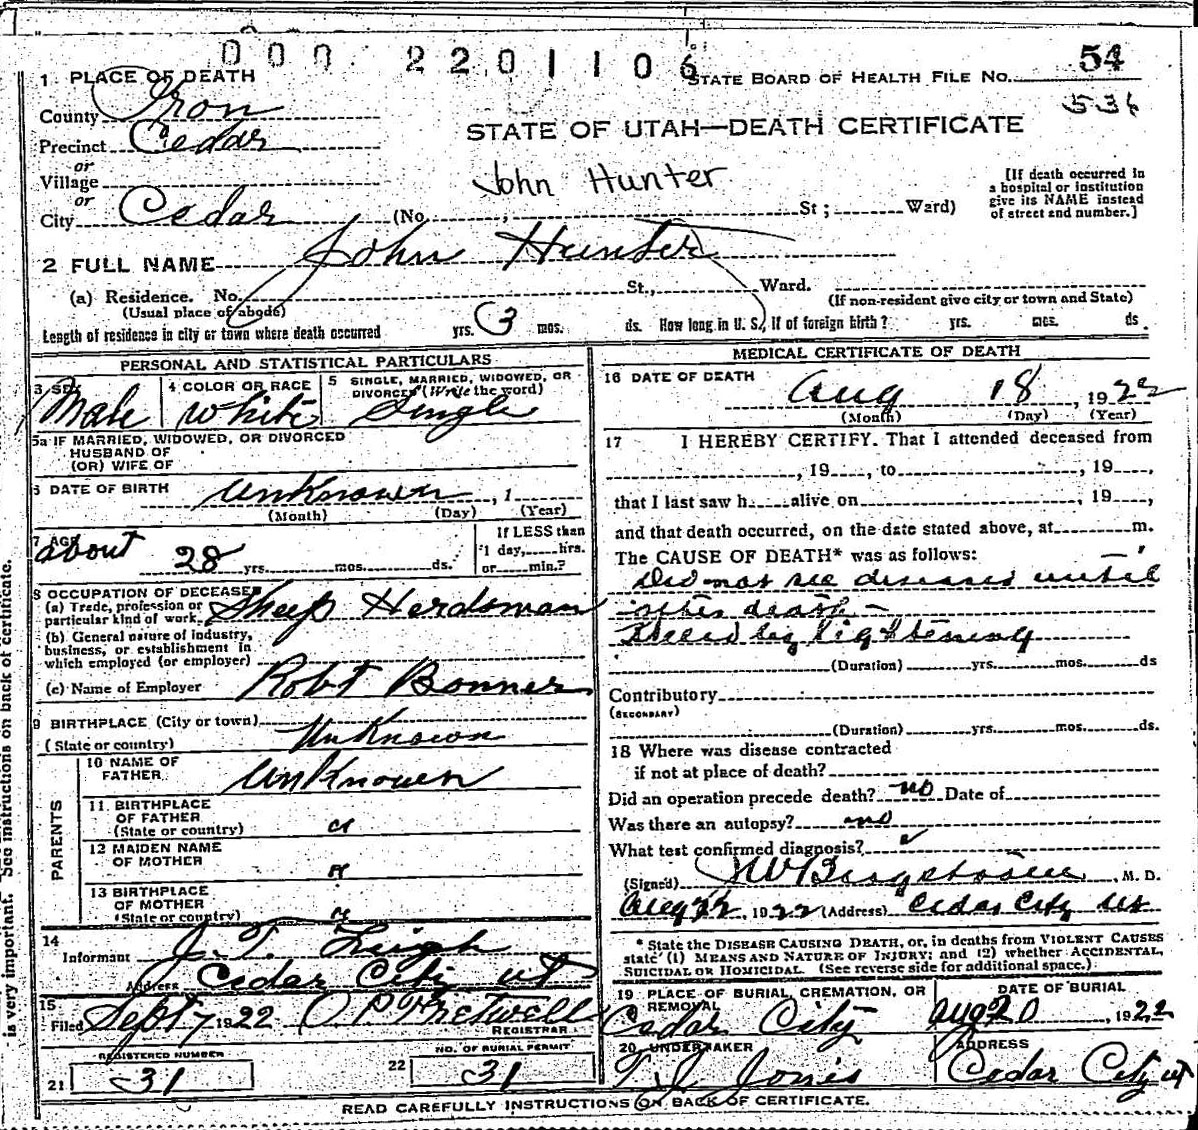 000 2201106
STATE BOARD OF HEALTH FILE No. 54
536
1 PLACE OF DEATH
County Iron
STATE OF UTAH—DEATH CERTIFICATE
Precinct Cedar
or
Village
John Hunter
[If death occurred in a hospital or institution give its NAME instead of street and number.]
or
City Cedar (No. , St ; Ward)
2 FULL NAME John Hunter
(a) Residence. No. St., Ward.
(Usual place of abode) (If non-resident give city or town and State)
Length of residence in city or town where death occurred yrs. 3 mos. ds. How long in U. S., if of foreign birth? yrs. mos. ds.
PERSONAL AND STATISTICAL PARTICULARS
3 SEX Male
4 COLOR OR RACE White
5 SINGLE, MARRIED, WIDOWED, OR DIVORCED (Write the word) Single
5a IF MARRIED, WIDOWED, OR DIVORCED
HUSBAND OF
(OR) WIFE OF
6 DATE OF BIRTH Unknown , 1
(Month) (Day) (Year)
7 AGE about 28 yrs. mos. ds.
If LESS than
1 day, hrs.
or min.?
8 OCCUPATION OF DECEASED
(a) Trade, profession or particular kind of work, Sheep Herdsman
(b) General nature of industry,
business, or establishment in
which employed (or employer)
(c) Name of Employer Robt Bonner
9 BIRTHPLACE (City or town)
(State or country) Unknown
PARENTS
10 NAME OF FATHER Unknown
11 BIRTHPLACE OF FATHER
(State or country) "
12 MAIDEN NAME OF MOTHER "
13 BIRTHPLACE OF MOTHER
(State or country) "
14
Informant J. T. Leigh
Address Cedar City ut
15
Filed Sept 7 1922 O P Fretwell
REGISTRAR
21 REGISTERED NUMBER 31
22 NO. OF BURIAL PERMIT 31
MEDICAL CERTIFICATE OF DEATH
16 DATE OF DEATH
Aug 18 , 1922
(Month) (Day) (Year)
17 I HEREBY CERTIFY. That I attended deceased from
, 19 , to , 19 ,
that I last saw h alive on , 19 ,
and that death occurred, on the date stated above, at m.
The CAUSE OF DEATH* was as follows:
Did not see diseased until
after death –
by lightening
(Duration) yrs. mos. ds
Contributory
(SECONDARY)
(Duration) yrs. mos. ds.
18 Where was disease contracted
if not at place of death?
Did an operation precede death? no Date of
Was there an autopsy? no
What test confirmed diagnosis?
(Signed) , M. D.
Aug 22, 1922 (Address) Cedar City Ut
* State the DISEASE CAUSING DEATH, or, in deaths from VIOLENT CAUSES
state (1) MEANS AND NATURE OF INJURY; and (2) whether ACCIDENTAL,
SUICIDAL OR HOMICIDAL. (See reverse side for additional space.)
19 PLACE OF BURIAL CREMATION, OR REMOVAL
Cedar City
DATE OF BURIAL
Aug 20 , 1922
20 UNDERTAKER
T J Jones
ADDRESS
Cedar City ut
READ CAREFULLY INSTRUCTIONS ON BACK OF CERTIFICATE.
is very important. See instructions on back of certificate.